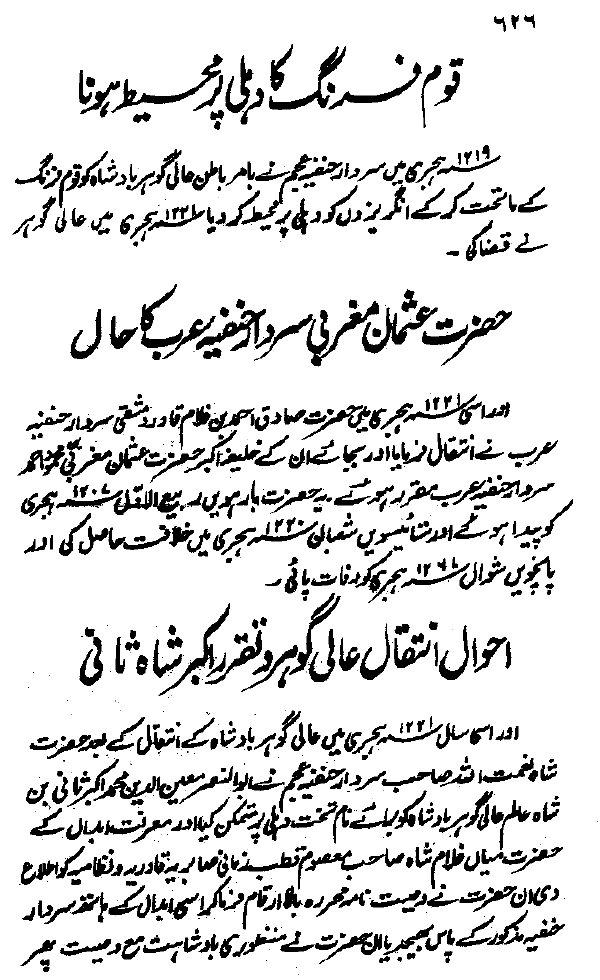 ٦٢٦
قوم فرنگ کا دہلی پر محیط ہونا
۱۲۱۹ سنہ ہجری میں سردار حنفیہ عجم نے بامر باطن عالی گوہر بادشاہ کو قوم فرنگ
کے ماتحت کر کے انگریزوں کو دہلی پر محیط کر دیا ۱۲۲۱ سنہ ہجری میں عالی گوہر
نے قضا کی ۔
حضرت عثمان مغربی سردار حنفیہ عرب کا حال
اور اسی ۱۲۲۱ سنہ ہجری میں حضرت صادق احمد بن غلام قادر دمشقی سردار حنفیہ
عرب نے انتقال فرمایا اور بجائے ان کے خلیفہ اکبر حضرت عثمان مغربی
سردار حنفیہ عرب مقرر ہوئے ۔ یہ حضرت بارہویں ربیع الاول ۱۲۰۷ سنہ ہجری
کو پیدا ہوئے اور ستائیسویں شعبان ۱۲۲۰ سنہ ہجری میں خلافت حاصل کی اور
پانچویں شوال ۱۲۶۷ سنہ ہجری کو وفات پائی ۔
احوال انتقال عالی گوہر و تقرر اکبر شاہ ثانی
اور اسی سال ۱۲۲۱ سنہ ہجری میں عالی گوہر بادشاہ کے انتقال کے بعد حضرت
شاہ نعمت اللہ صاحب سردار حنفیہ عجم نے ابوالنصر معین الدین محمد اکبر ثانی بن
شاہ عالم عالی گوہر بادشاہ کو برائے نام تخت دہلی پر متمکن کیا اور معرفت ابدال کے
حضرت میاں غلام شاہ صاحب معصوم قطب زمانی صابریہ قادریہ و نظامیہ کو اطلاع
دی ان حضرت نے وصیت نامہ محررہ بالا ارقام فرما کر اسی ابدال کے ہاتھ سردار
حنفیہ مذکور کے پاس بھیجدیا ان حضرت نے منظوری بادشاہت مع وصیت پھر